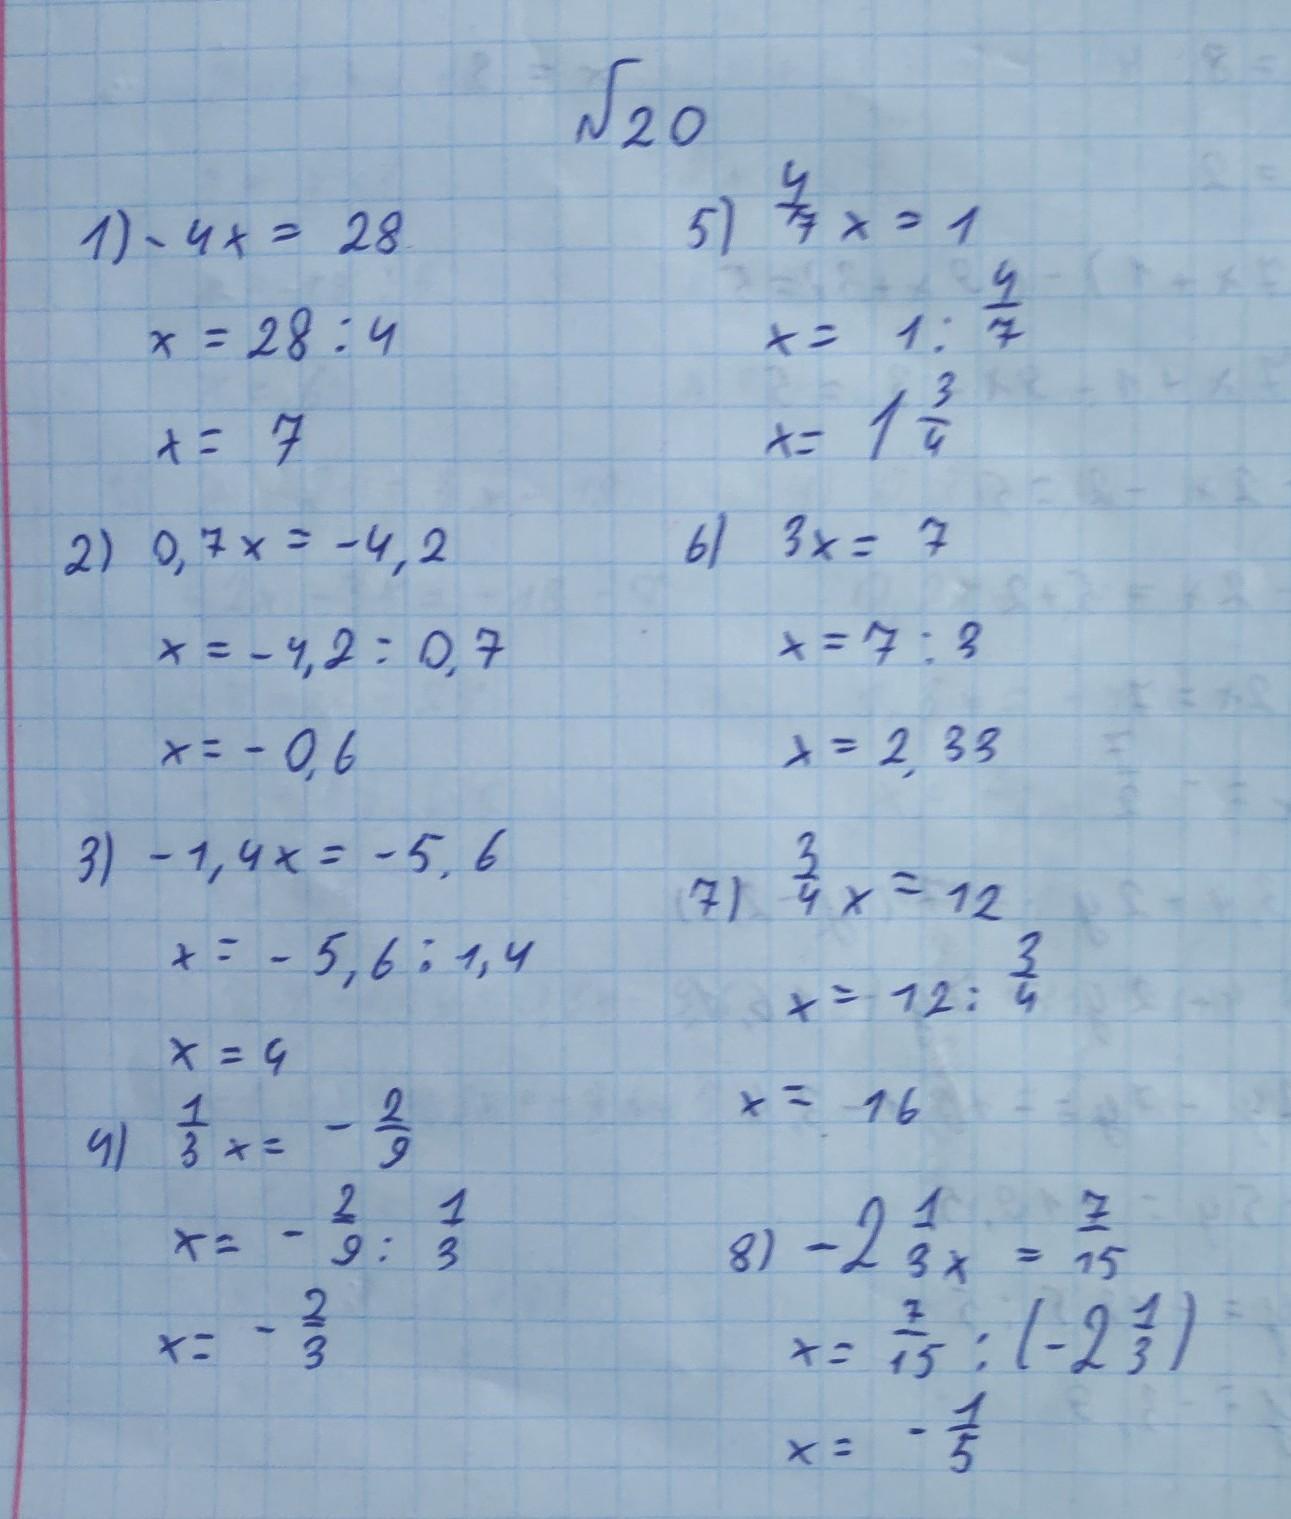 №20
1) -4x = 28
x = 28 : 4
x = 7
2) 0,7x = -4,2
x = -4,2 : 0,7
x = -0,6
3) -1,4x = -5,6
x = -5,6 : 1,4
x = 4
4) 1/3 x = - 2/9
x = - 2/9 : 1/3
x = - 2/3
5) 4/7 x = 1
x = 1 : 4/7
x = 1 3/4
6) 3x = 7
x = 7 : 3
x = 2,33
7) 3/4 x = 12
x = 12 : 3/4
x = 16
8) -2 1/3 x = 7/15
x = 7/15 : (-2 1/3)
x = - 1/5